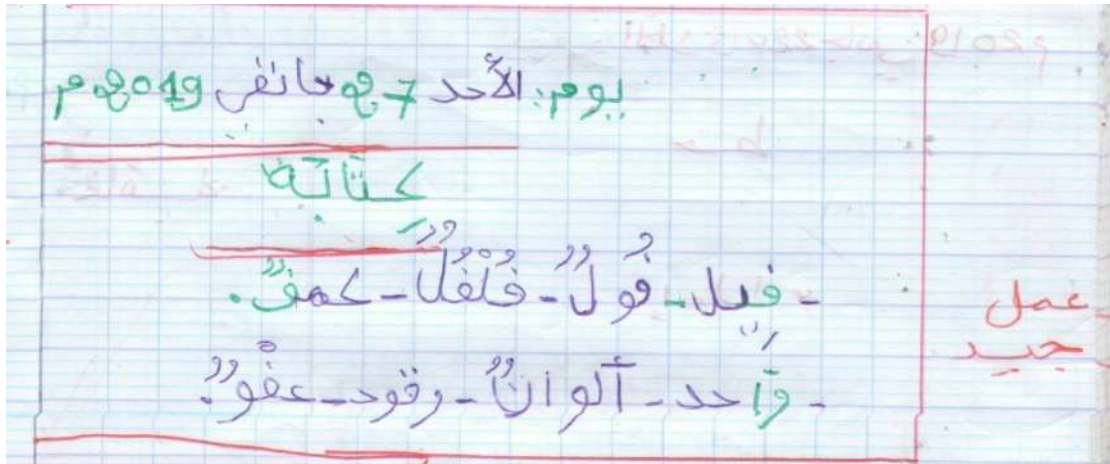 يوم: الأحد 27 جانفي 2019م
كِتَابَة
- فِيل - فُولٌ - فُلْفُلٌ - كهفٌ.
- وَاحد - ألوانٌ - وقود - عفْوٌ.
عمل
جيد